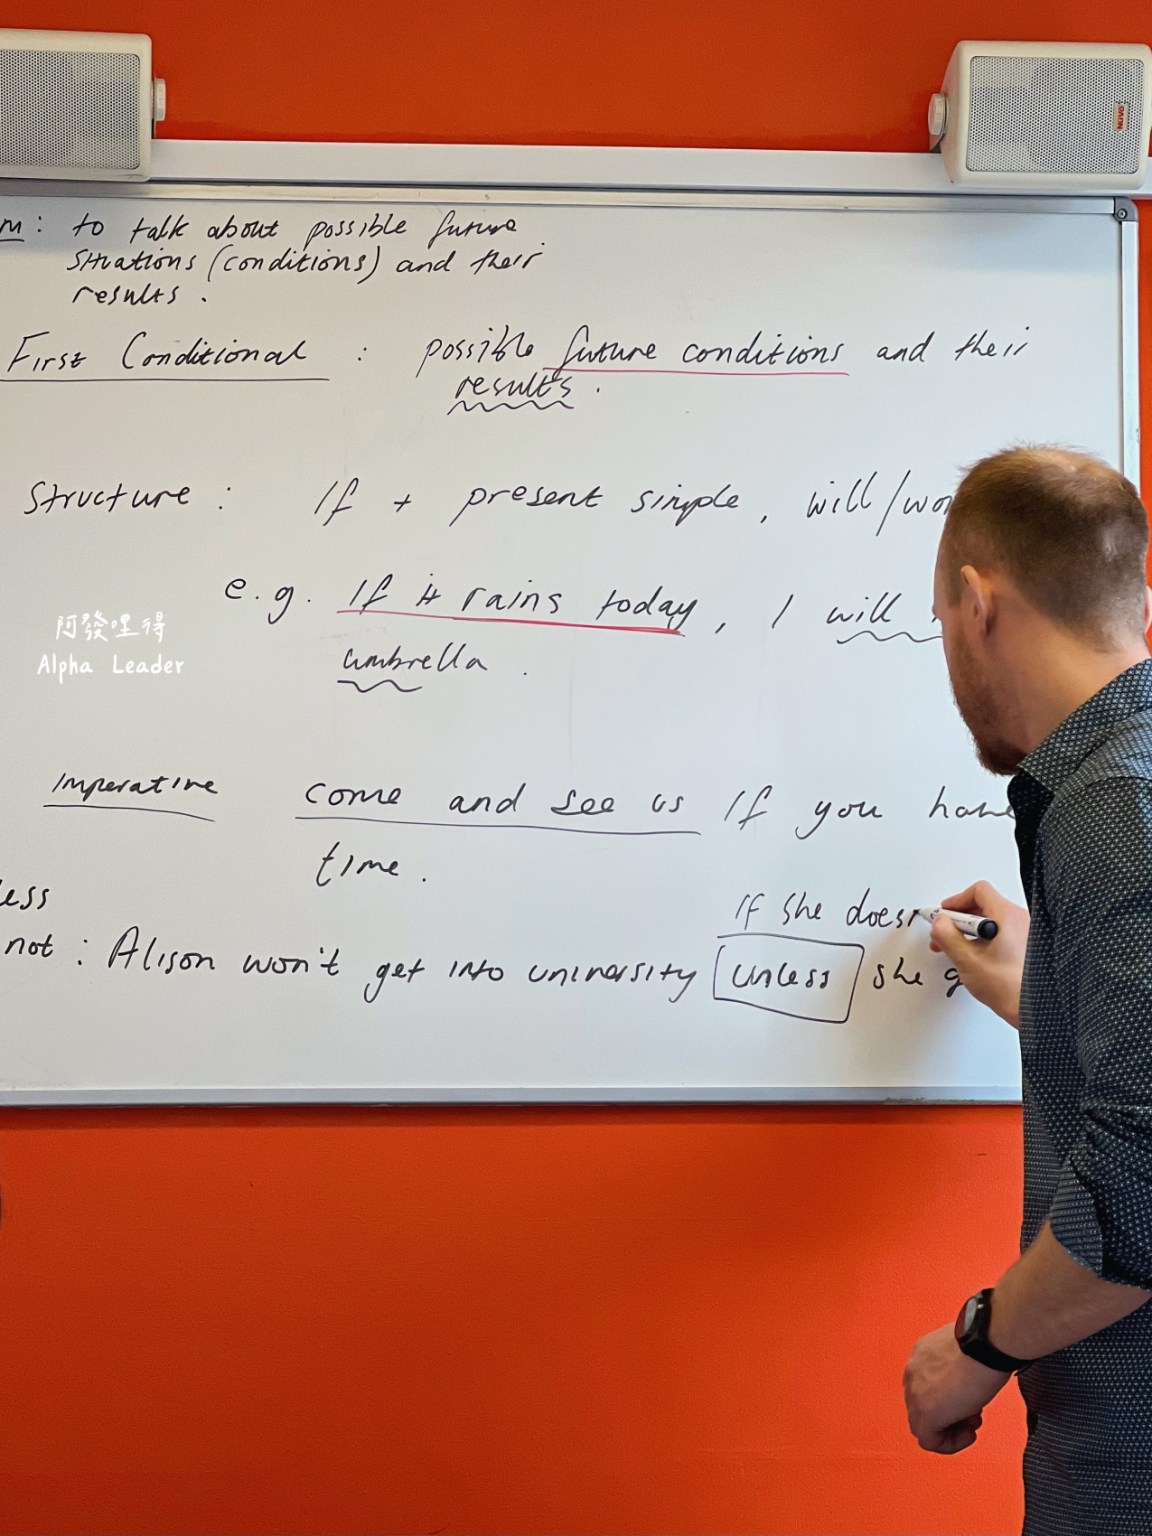 m: to talk about possible future
situations (conditions) and their
results.
First Conditional : possible future conditions and their
results.
Structure : If + present simple, will/wo
e.g. If it rains today, I will
umbrella.
阿發哩得
Alpha Leader
Imperative come and see us if you have
time.
less
not : Alison won't get into university unless she g
if she does
NUVO